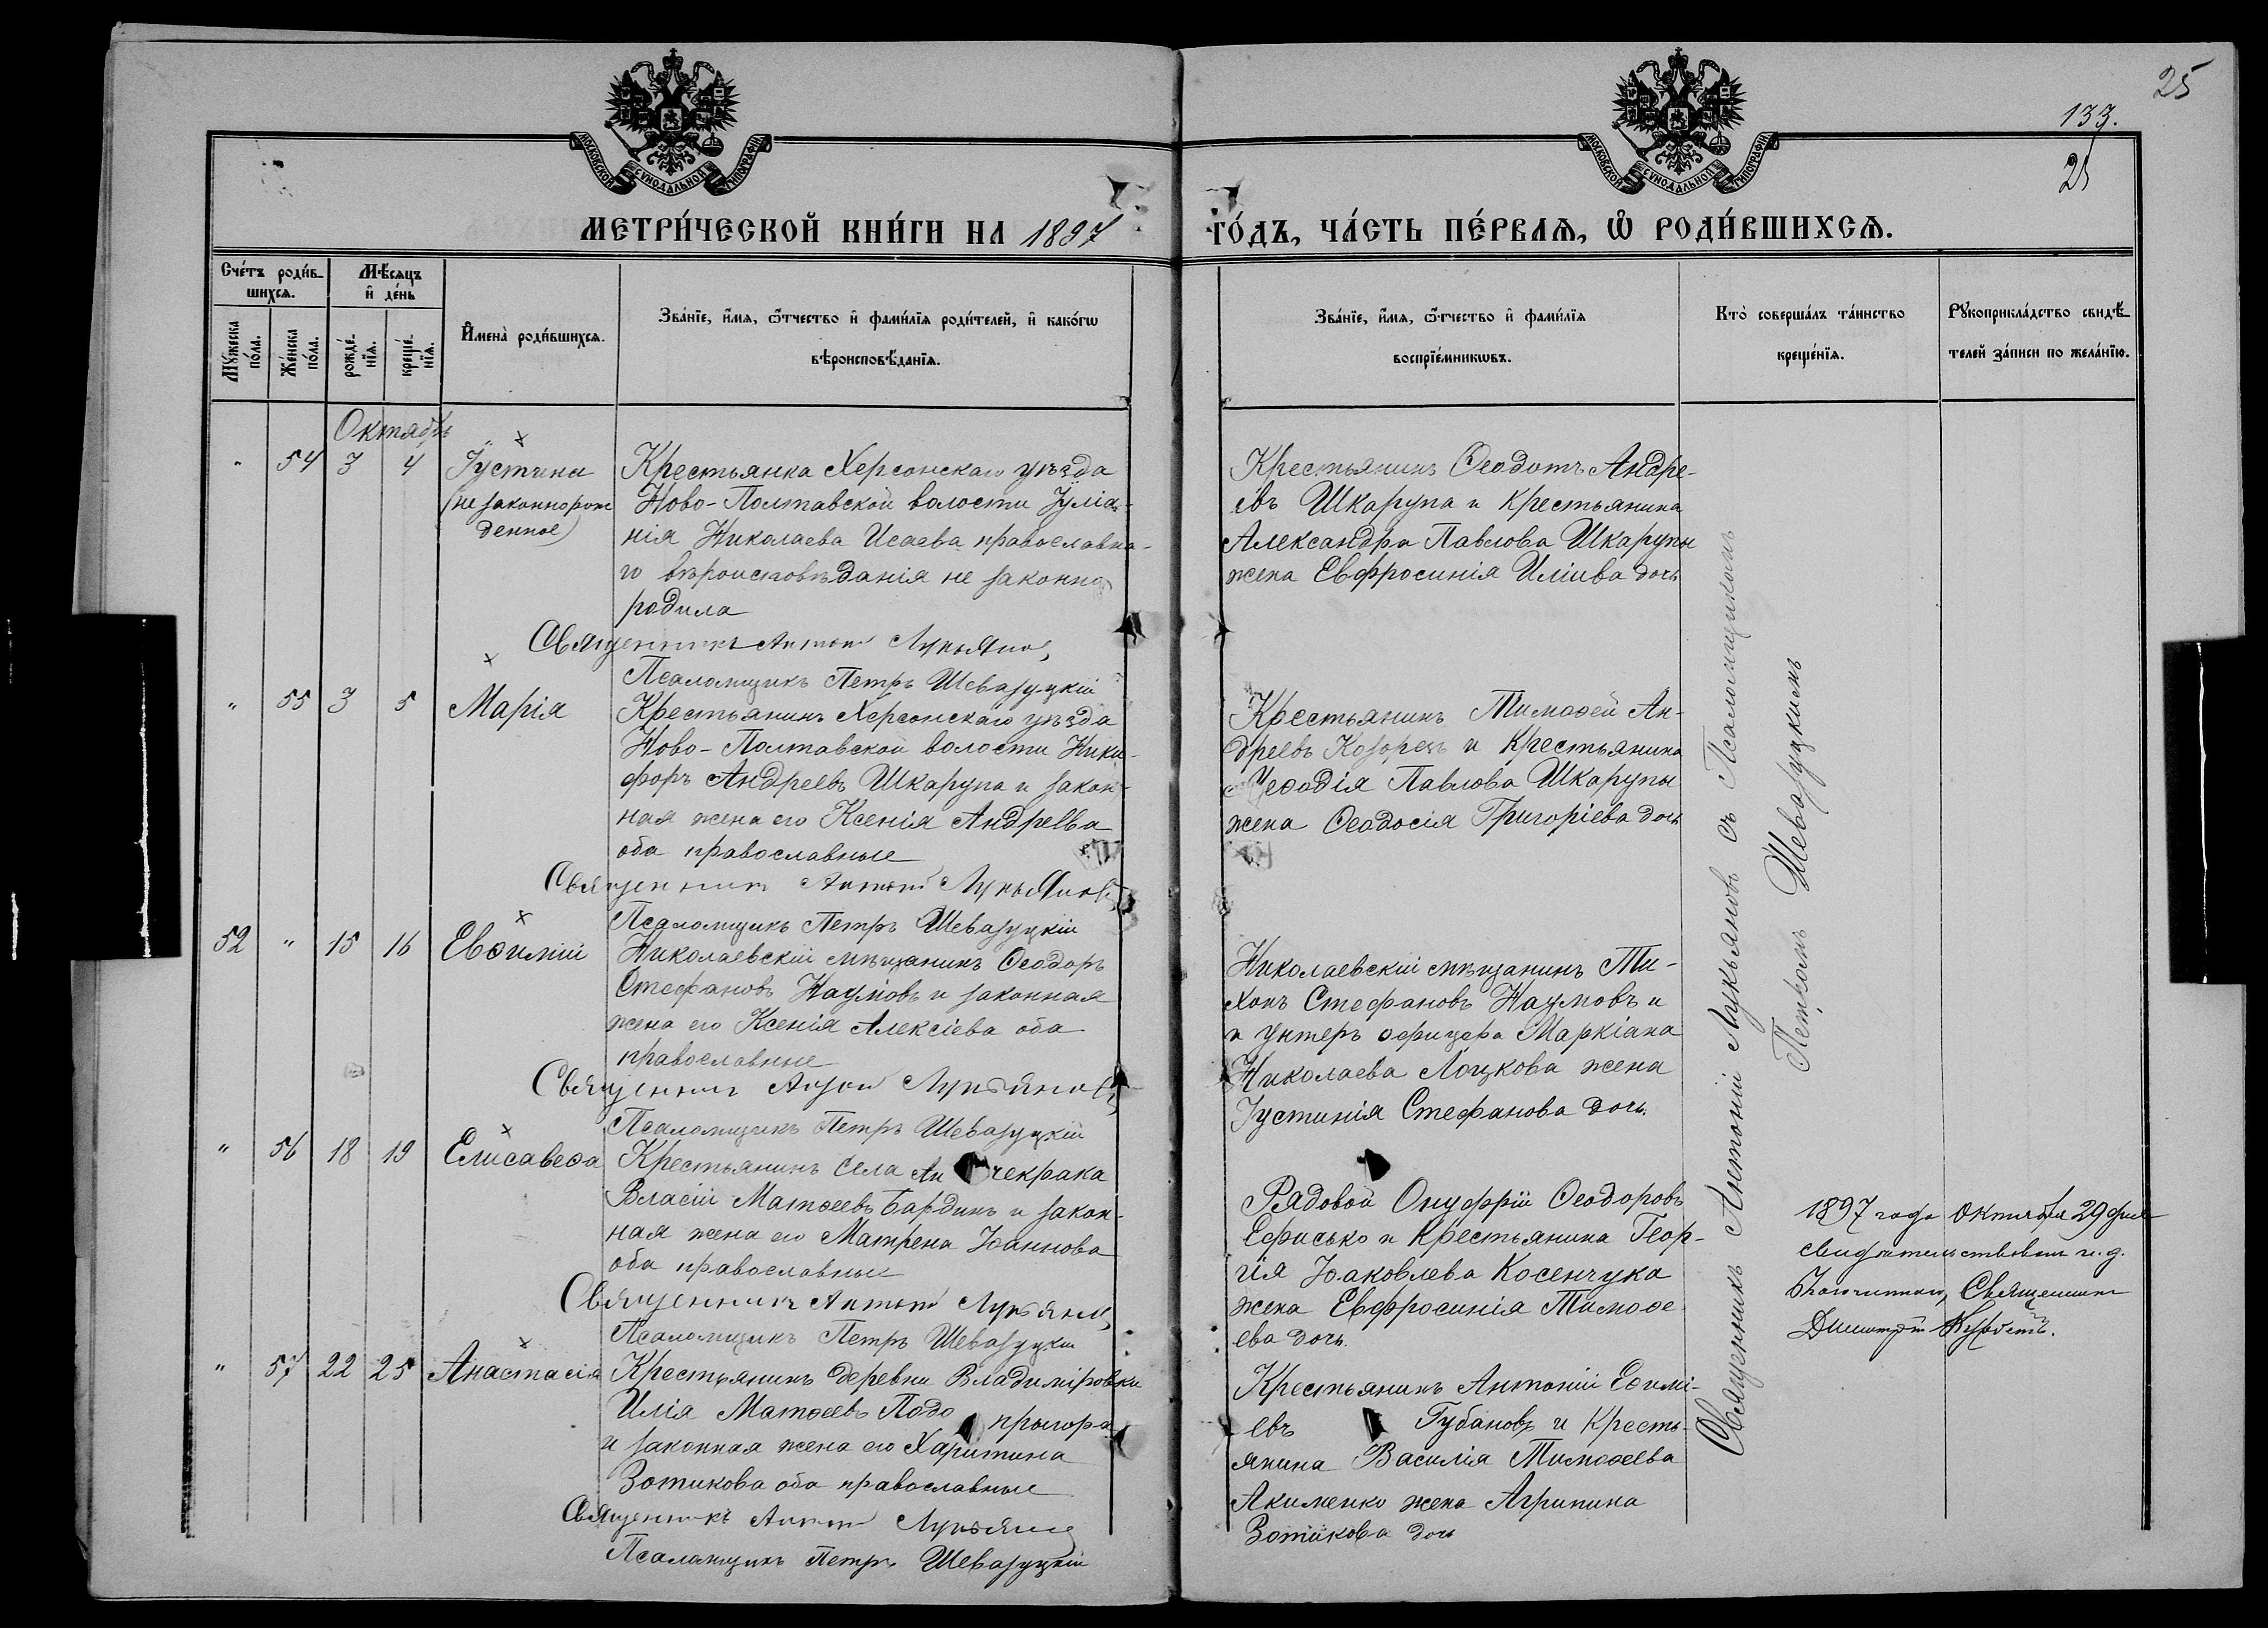 25
133.
25
МОСКОВСКОЙ СѴНОДАЛЬНОЙ ТИПОГРАФІИ
МОСКОВСКОЙ СѴНОДАЛЬНОЙ ТИПОГРАФІИ
МЕТРИ́ЧЕСКОЙ КНИ́ГИ НА 1897 ГО́ДЪ, ЧА́СТЬ ПЕ́РВАѦ, Ѡ҆ РОДИ́ВШИХСѦ.
Сче́тъ роди́в-
шихсѧ.
Мѣ́сѧцъ
и҆ де́нь
Мꙋ́жеска
по́ла.
Же́нска
по́ла.
рожде́-
нїѧ.
креще́-
нїѧ.
И҆мена̀ роди́вшихсѧ.
Зва́нїе, и҆́мѧ, ѻ҆́тчество и҆ фами́лїѧ роди́телей, и҆ како́гѡ
вѣроисповѣ́данїѧ.
Зва́нїе, и҆́мѧ, ѻ҆́тчество и҆ фами́лїѧ
воспрїе́мникѡвъ.
Кто̀ соверша́лъ та́инство
креще́нїѧ.
Рꙋкоприкла́дство свидѣ́-
телей за́писи по жела́нїю.
Октябрь
" 54 3 4 Іустина
(не законнорож
денное)
Крестьянка Херсонскаго уѣзда
Ново-Полтавской волости Іуліа-
нія Николаева Исаева православна-
го вѣроисповѣданія не законно
родила
Священникъ Антоній Лукьянов
Псаломщикъ Петръ Шевазуцкій
Крестьянинъ Ѳеодотъ Андре-
евъ Шкарупа и Крестьянина
Александра Павлова Шкарупы
жена Евфросинія Иліива дочь
" 55 3 5 Марія
Крестьянинъ Херсонскаго уѣзда
Ново-Полтавской волости Ники-
форъ Андреевъ Шкарупа и закон-
ная жена его Ксенія Андреева
оба православные
Священникъ Антоній Лукьянов
Псаломщикъ Петръ Шевазуцкій
Крестьянинъ Тимоѳей Ан-
дреевъ Козорезъ и Крестьянина
Павлова Шкарупы
жена Ѳеодосія Григоріева дочь
52 " 15 16 Евѳимій
Николаевскій мѣщанинъ Ѳеодоръ
Стефановъ Наумовъ и законная
жена его Ксенія Алексіева оба
православные
Священникъ Антоній Лукьянов
Псаломщикъ Петръ Шевазуцкій
Николаевскій мѣщанинъ Ти-
хонъ Стефановъ Наумовъ и
и унтеръ офицера Маркіана
Николаева Лоцкова жена
Іустинія Стефанова дочь.
" 56 18 19 Елисавеѳа
Крестьянинъ села Ан чекрака
Власій Матѳеевъ Бардинъ и закон-
ная жена его Матрена Іоаннова
оба православные
Священникъ Антоній Лукьянов
Псаломщикъ Петръ Шевазуцкій
Рядовой Онуфрій Ѳеодоровъ
Ефисько и Крестьянина Геор-
гія Іоаковлева Косенчука
жена Евфросинія Тимоѳе-
ева дочь.
" 57 22 25 Анастасія
Крестьянинъ деревни Владиміровки
Илія Матѳеевъ Подо пригора
и законная жена его Харитина
Зотикова оба православные
Священникъ Антоній Лукьянов
Псаломщикъ Петръ Шевазуцкій
Крестьянинъ Антоній Еѳимі-
евъ Губановъ и Кресть-
янина Василія Тимоѳеева
Акименко жена Агрипина
Зотикова дочь
Священникъ Антоній Лукьяновъ съ Псаломщикомъ
Петромъ Шевазуцкимъ
1897 года Октября 29 дня
свидѣтельствовалъ и. д.
Благочиннаго, Священникъ